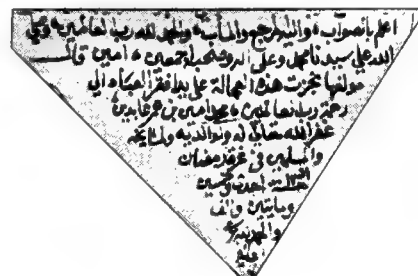 اعلم بالصواب واليه المرجع والمآب والحمد لله رب العالمين وصلى
الله على سيدنا محمد وعلى اله وصحبه اجمعين امين قال
مولفها نجزت هذه العجالة على يد افقر العباد الى
رحمة رب العالمين محمد امين بن عمر عابدين
غفر الله تعالى له ولوالديه ولمشايخه
والمسلمين في غرة رمضان
سنة احدى وخمسين
وماتين والف
والحمد لله